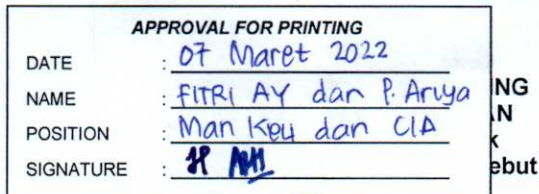 APPROVAL FOR PRINTING
DATE : 07 Maret 2022
NAME : FITRI AY dan P. Ariya
POSITION : Man Keu dan CIA
SIGNATURE :
NG
N
K
ebut